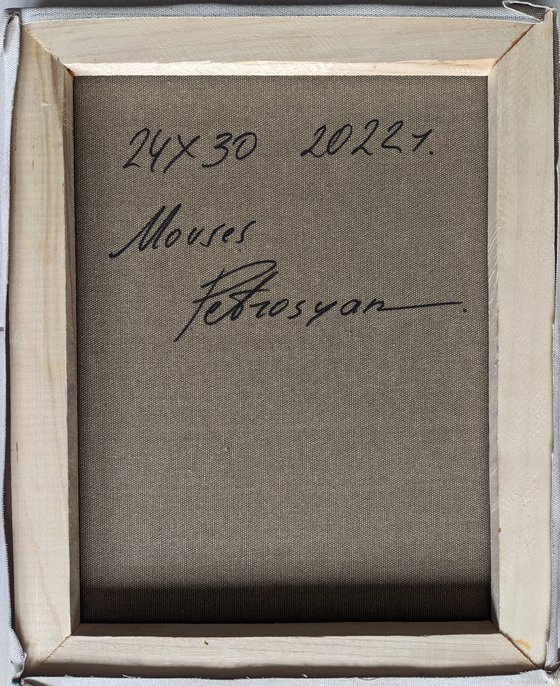 24x30 2022г.
Movses
Petrosyan